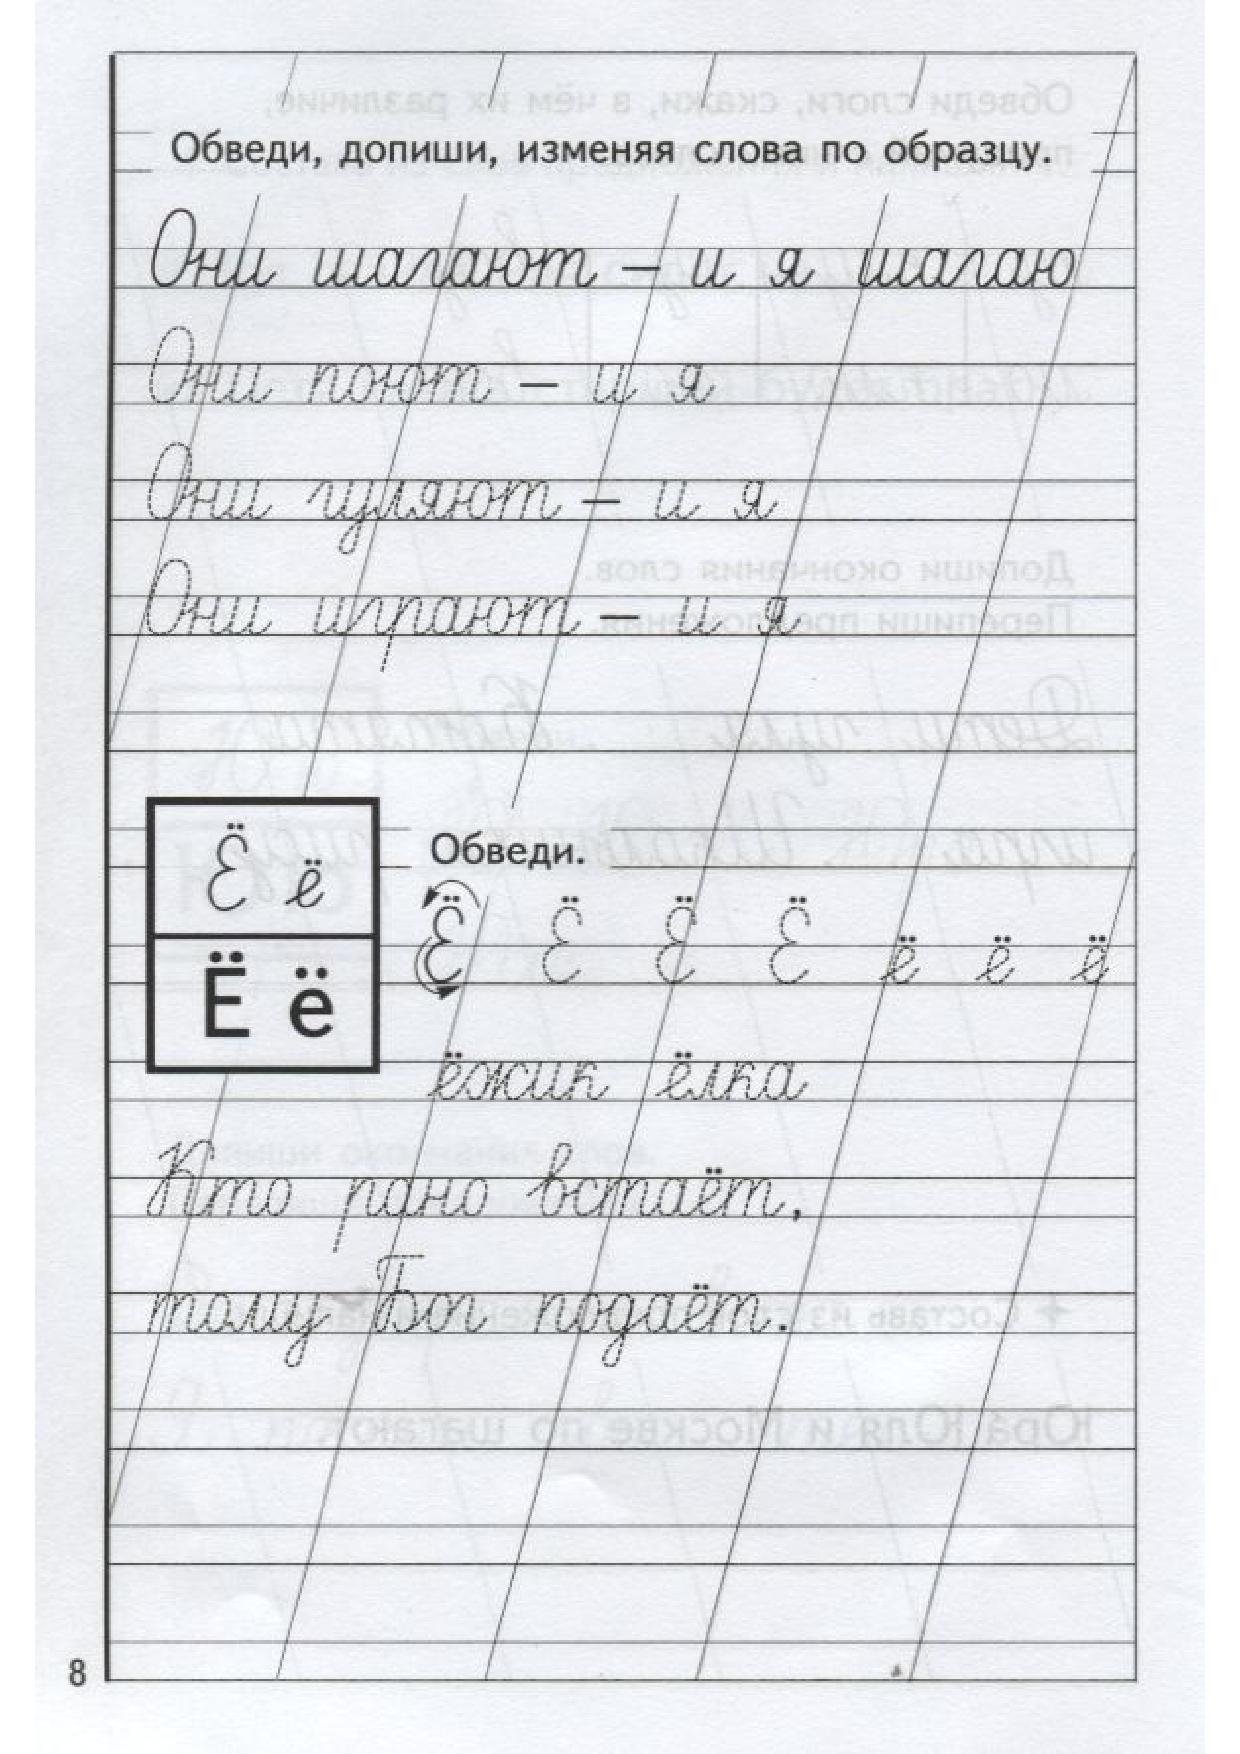 Обведи, допиши, изменяя слова по образцу.
Они шагают – и я шагаю
Они поют – и я
Они гуляют – и я
Они играют – и я
Ё ё
Ё ё
Обведи.
Ё Ё Ё Ё ё ё ё
ёжик ёлка
Кто рано встаёт,
тому Бог подаёт.
8